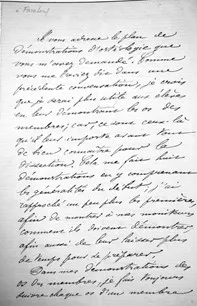 a Farabeuf
Je vous adresse le plan de
démonstrations d'ostéologie que
vous m'avez demandé. Comme
vous me l'aviez dit dans une
précédente conversation, je crois
que je serai plus utile aux élèves
en leur démontrant les os des
membres; car, ce sont ceux-là
qu'il leur importe avant tout
de bien connaître pour la
dissection. Cela me fait huit
démonstrations en y comprenant
les généralités du début, j'ai
rapproché un peu plus les premières
afin de montrer à nos moniteurs
comment ils doivent démontrer,
afin aussi de leur laisser plus
de temps pour se préparer.
Dans mes démonstrations des
os des membres, je fais toujours
suivre chaque os d'un membre